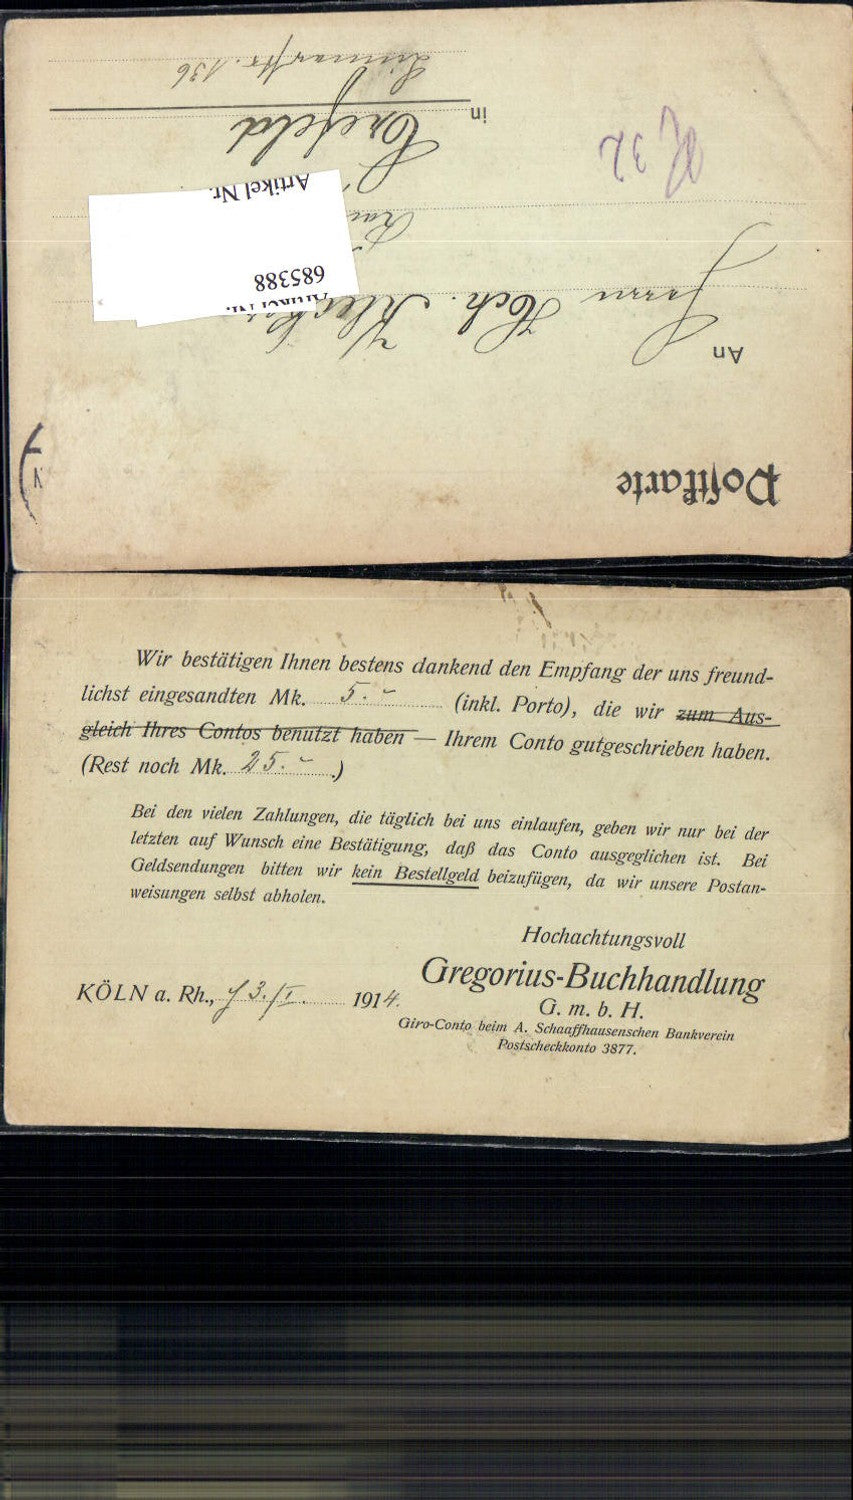 Postkarte
An
Herrn Hch.
in Crefeld
136
H 32
685388
Artikel Nr.
Artikel Nr.
Wir bestätigen Ihnen bestens dankend den Empfang der uns freund-
lichst eingesandten Mk. 5.- (inkl. Porto), die wir zum Aus-
gleich Ihres Contos benutzt haben — Ihrem Conto gutgeschrieben haben.
(Rest noch Mk. 25.- .)
Bei den vielen Zahlungen, die täglich bei uns einlaufen, geben wir nur bei der
letzten auf Wunsch eine Bestätigung, daß das Conto ausgeglichen ist. Bei
Geldsendungen bitten wir kein Bestellgeld beizufügen, da wir unsere Postan-
weisungen selbst abholen.
Hochachtungsvoll
Gregorius-Buchhandlung
KÖLN a. Rh., 1914.
G. m. b. H.
Giro-Conto beim A. Schaaffhausenschen Bankverein
Postscheckkonto 3877.